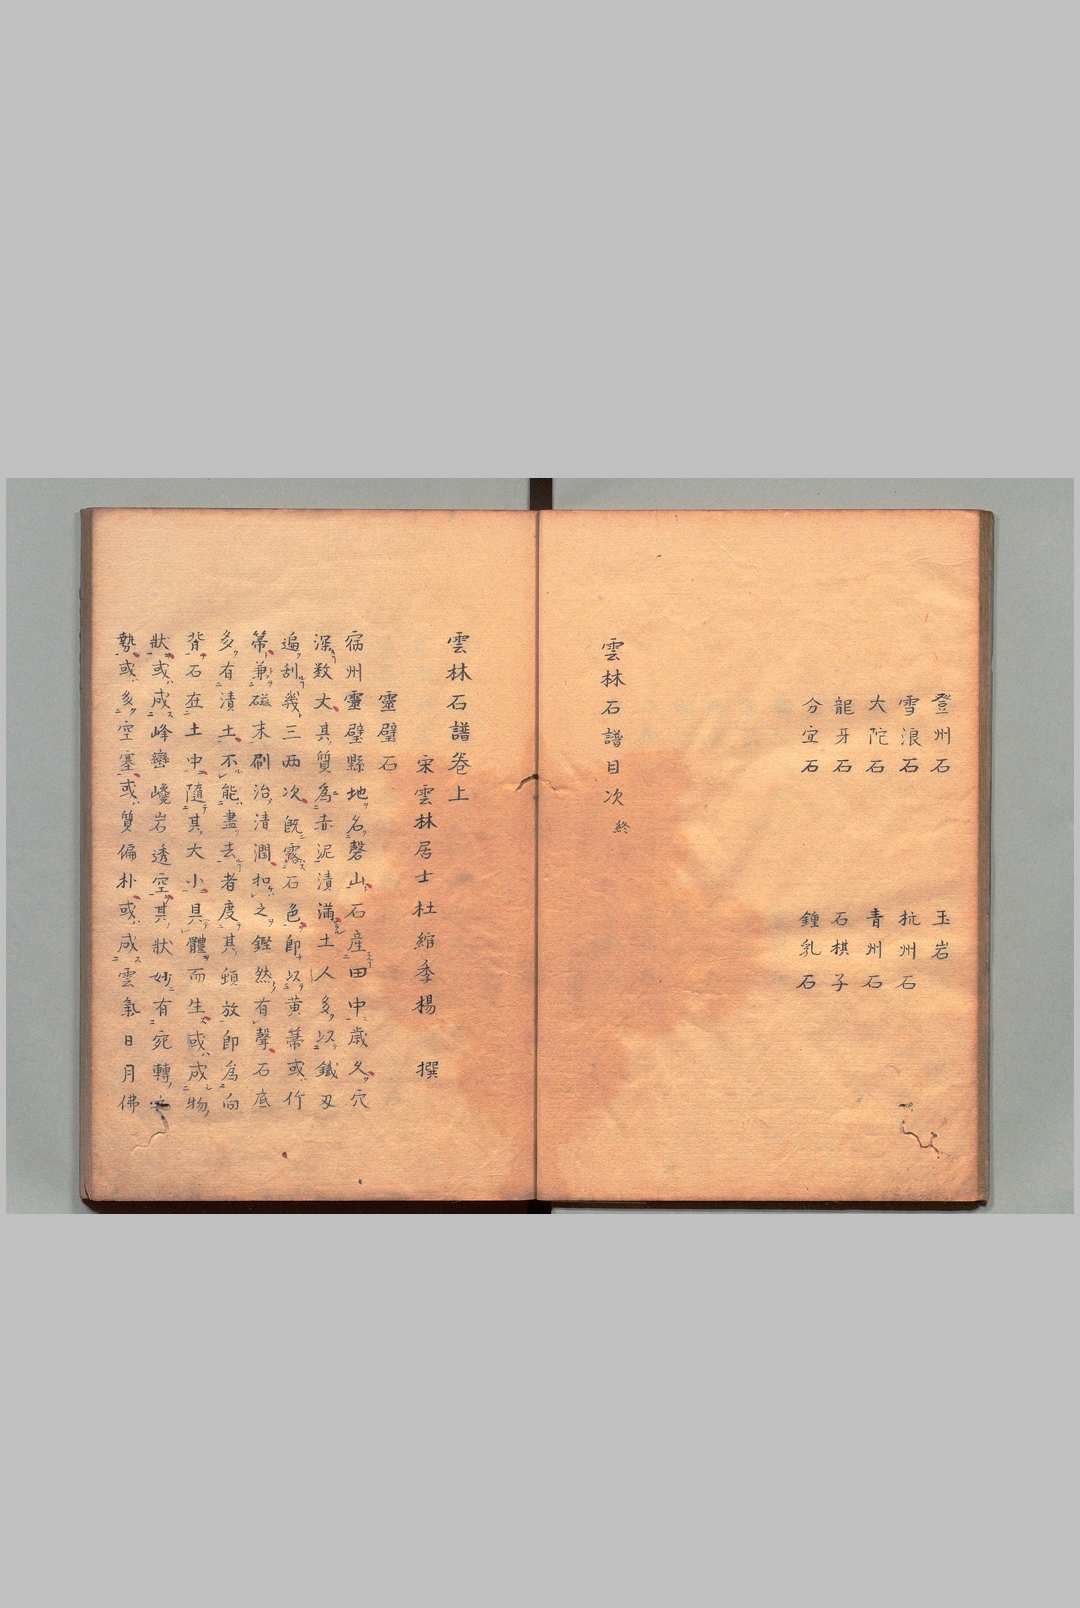 登州石　玉岩
雪浪石　杭州石
大陀石　青州石
龍牙石　石棋子
分宜石　鍾乳石
雲林石譜目次終
雲林石譜卷上
宋雲林居士杜綰季楊　撰
靈璧石
宿州靈璧縣地名磬山石産田中歲久穴
深数丈其質為赤泥漬滿土人多以鐵刃
遍刮幾三両次既露石色即以黄蒂或竹
帚兼磁末刷治清潤扣之鏗然有聲石底
多有漬土不能盡去者度其頓放即為向
背石在土中隨其大小具體而生或成物
狀或成峰巒巉岩透空其狀妙有宛轉之
勢或多空塞或質偏朴或成雲氣日月佛